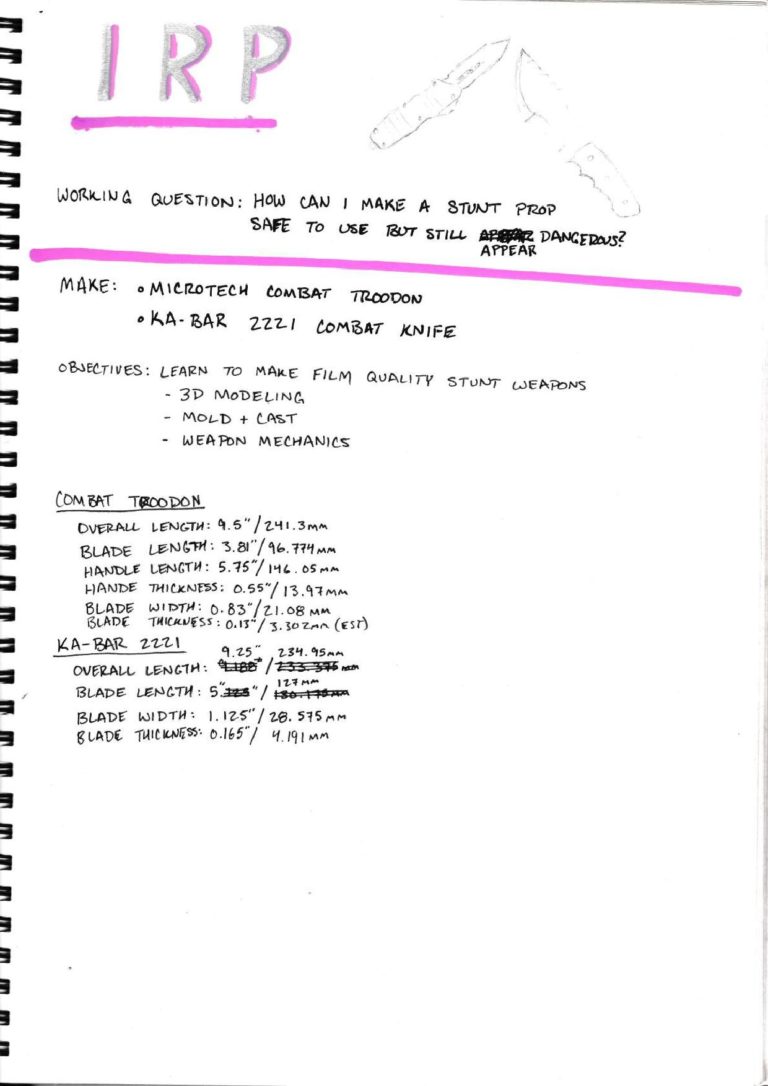 IRP
WORKING QUESTION: HOW CAN I MAKE A STUNT PROP
SAFE TO USE BUT STILL DANGEROUS?
APPEAR
MAKE: • MICROTECH COMBAT TROODON
• KA-BAR 2221 COMBAT KNIFE
OBJECTIVES: LEARN TO MAKE FILM QUALITY STUNT WEAPONS
- 3D MODELING
- MOLD + CAST
- WEAPON MECHANICS
COMBAT TROODON
OVERALL LENGTH: 9.5"/241.3MM
BLADE LENGTH: 3.81"/96.774MM
HANDLE LENGTH: 5.75"/146.05MM
HANDE THICKNESS: 0.55"/13.97MM
BLADE WIDTH: 0.83"/21.08 MM
BLADE THICKNESS: 0.13"/3.302MM (EST)
KA-BAR 2221
9.25" 234.95MM
OVERALL LENGTH: / MM
127MM
BLADE LENGTH: 5"/
BLADE WIDTH: 1.125"/28.575MM
BLADE THICKNESS: 0.165"/ 4.191MM